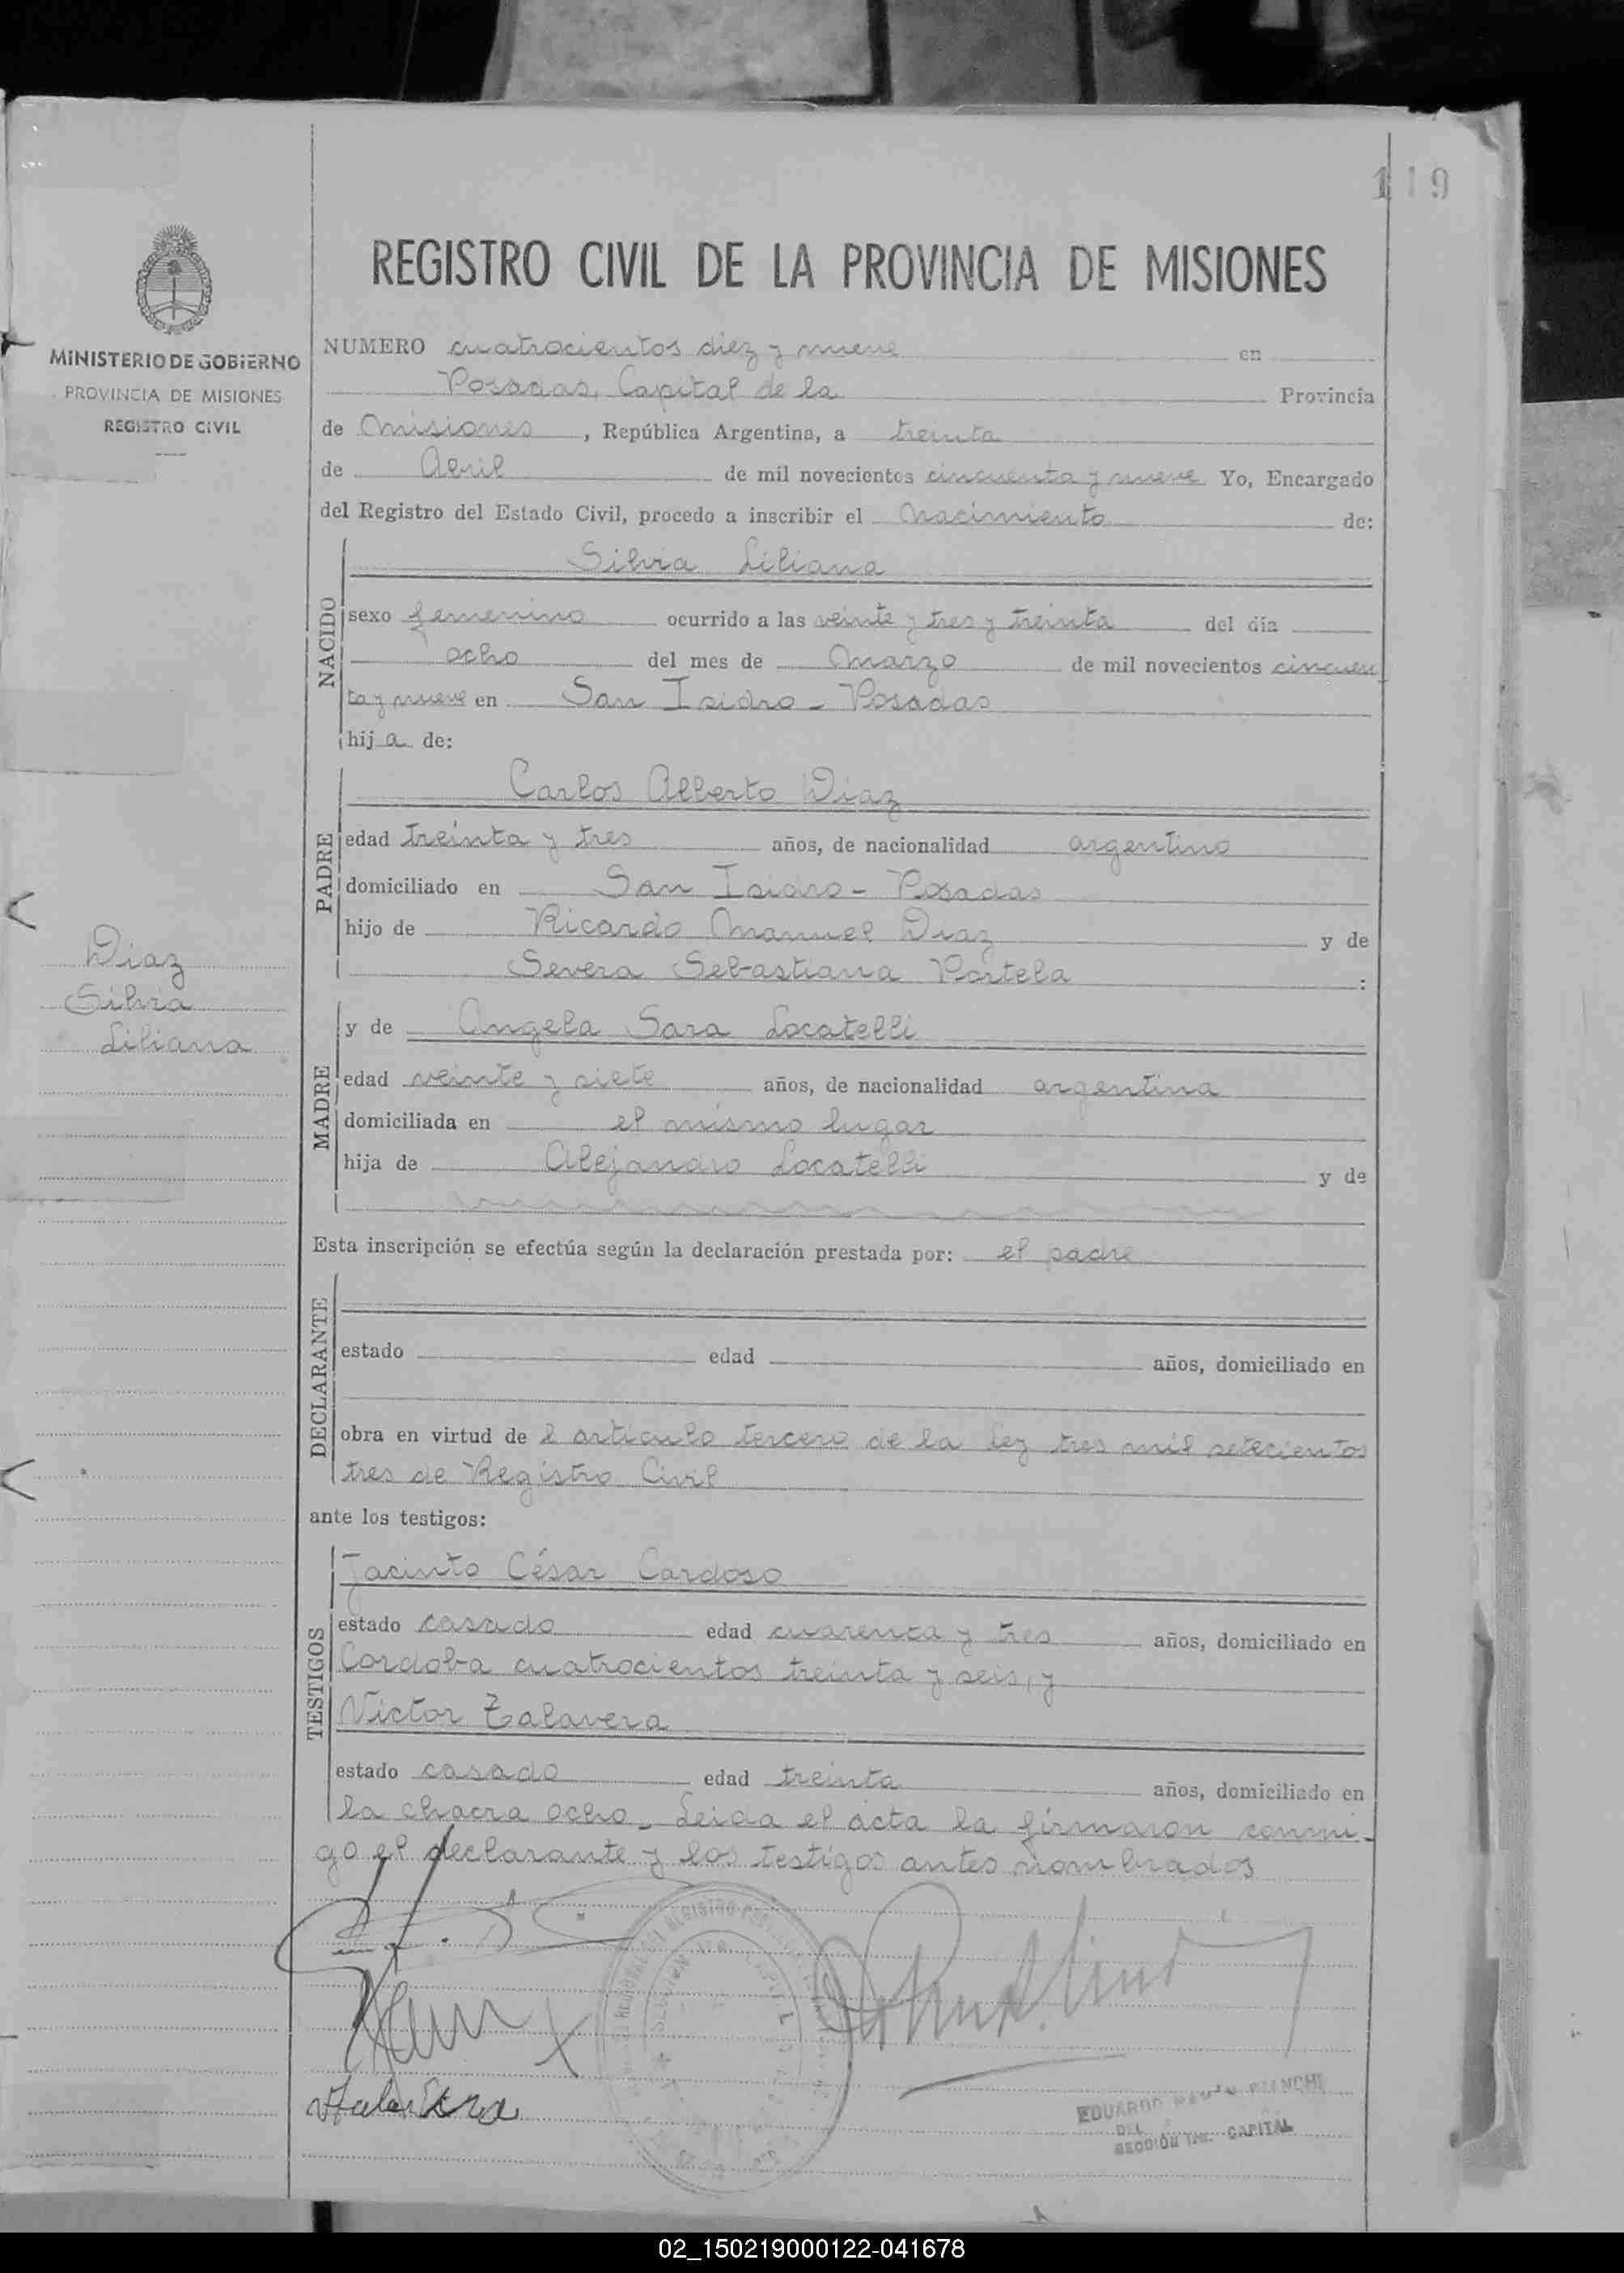 119
REGISTRO CIVIL DE LA PROVINCIA DE MISIONES
MINISTERIO DE GOBIERNO
PROVINCIA DE MISIONES
REGISTRO CIVIL
NUMERO cuatrocientos diez y nueve en
Posadas, Capital de la Provincia
de Misiones, República Argentina, a treinta
de Abril de mil novecientos cincuenta y nueve Yo, Encargado
del Registro del Estado Civil, procedo a inscribir el Nacimiento de:
NACIDO
Silvia Liliana
sexo femenino ocurrido a las veinte y tres y treinta del día
ocho del mes de Marzo de mil novecientos cincuen
ta y nueve en San Isidro - Posadas
hija de:
PADRE
Carlos Alberto Diaz
edad treinta y tres años, de nacionalidad argentino
domiciliado en San Isidro - Posadas
hijo de Ricardo Manuel Diaz y de
Severa Sebastiana Portela :
Diaz
Silvia
Liliana
MADRE
y de Angela Sara Locatelli
edad veinte y siete años, de nacionalidad argentina
domiciliada en el mismo lugar
hija de Alejandro Locatelli y de
Esta inscripción se efectúa según la declaración prestada por: el padre
DECLARANTE
estado edad años, domiciliado en
obra en virtud de l articulo tercero de la Ley tres mil setecientos
tres de Registro Civil
ante los testigos:
TESTIGOS
Jacinto César Cardoso
estado casado edad cuarenta y tres años, domiciliado en
Cordoba cuatrocientos treinta y seis, y
Victor Talavera
estado casado edad treinta años, domiciliado en
la chacra ocho. Leida el acta la firmaron conmi-
go el declarante y los testigos antes nombrados
EDUARDO RAMON BIANCHI
DEL
SECCION CAPITAL
02_150219000122-041678